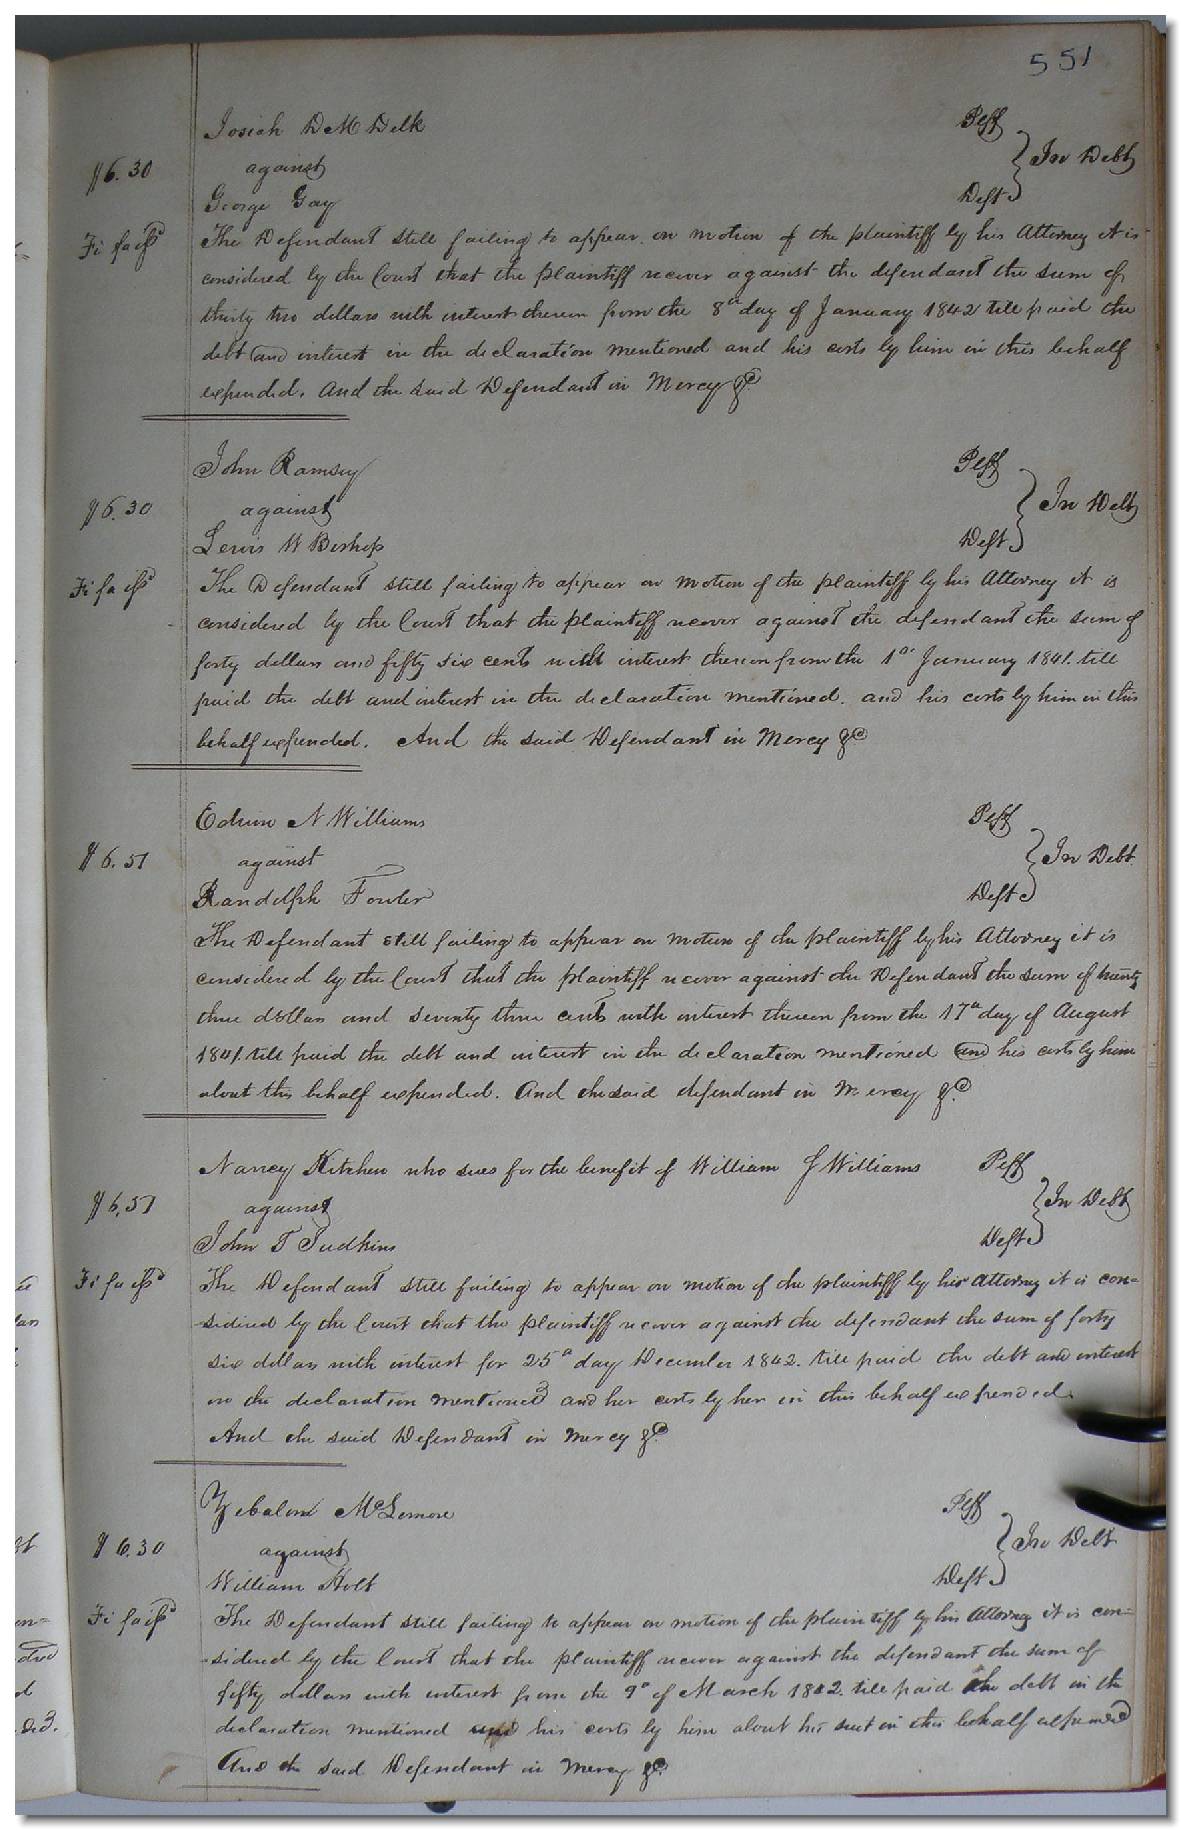 551
Josiah D M Delk Plff
$6.30 against In Debt
George Gay Deft
Fi fa issd The Defendant still failing to appear on motion of the plaintiff by his Attorney it is
considered by the Court that the plaintiff recover against the defendant the sum of
thirty two dollars with interest thereon from the 8th day of January 1842 till paid the
debt and interest in the declaration mentioned and his costs by him in this behalf
expended. And the said Defendant in Mercy &c
John Ramsey Plff
$6.30 against In Debt
Lewis W Bishop Deft
Fi fa issd The Defendant still failing to appear on motion of the plaintiff by his Attorney it is
considered by the Court that the plaintiff recover against the defendant the sum of
forty dollars and fifty six cents with interest thereon from the 1st January 1841. till
paid the debt and interest in the declaration mentioned. and his costs by him in this
behalf expended. And the said Defendant in Mercy &c
Edwin N Williams Plff
$6.51 against In Debt
Randolph Fowler Deft
The Defendant still failing to appear on motion of the plaintiff by his Attorney it is
considered by the Court that the plaintiff recover against the Defendant the sum of twenty
three dollars and seventy three cents with interest thereon from the 17th day of August
1841. till paid the debt and interest in the declaration mentioned and his costs by him
about this behalf expended. And the said defendant in Mercy &c
Nancy Kitchen who sues for the benefit of William J Williams Plff
$6.51 against In Debt
John T Judkins Deft
Fi fa issd The Defendant still failing to appear on motion of the plaintiff by his Attorney it is con=
-sidered by the Court that the plaintiff recover against the defendant the sum of forty
six dollars with interest for 25th day December 1842. till paid the debt and interest
in the declaration mentioned and her costs by her in this behalf expended.
And the said Defendant in Mercy &c
Zebalon McLemore Plff
$6.30 against In Debt
William Holt Deft
Fi fa issd The Defendant still failing to appear on motion of the plaintiff by his Attorney it is con=
-sidered by the Court that the plaintiff recover against the defendant the sum of
fifty dollars with interest from the 9th of March 1842. till paid the debt in the
declaration mentioned and his costs by him about his suit in this behalf expended
And the said Defendant in Mercy &c